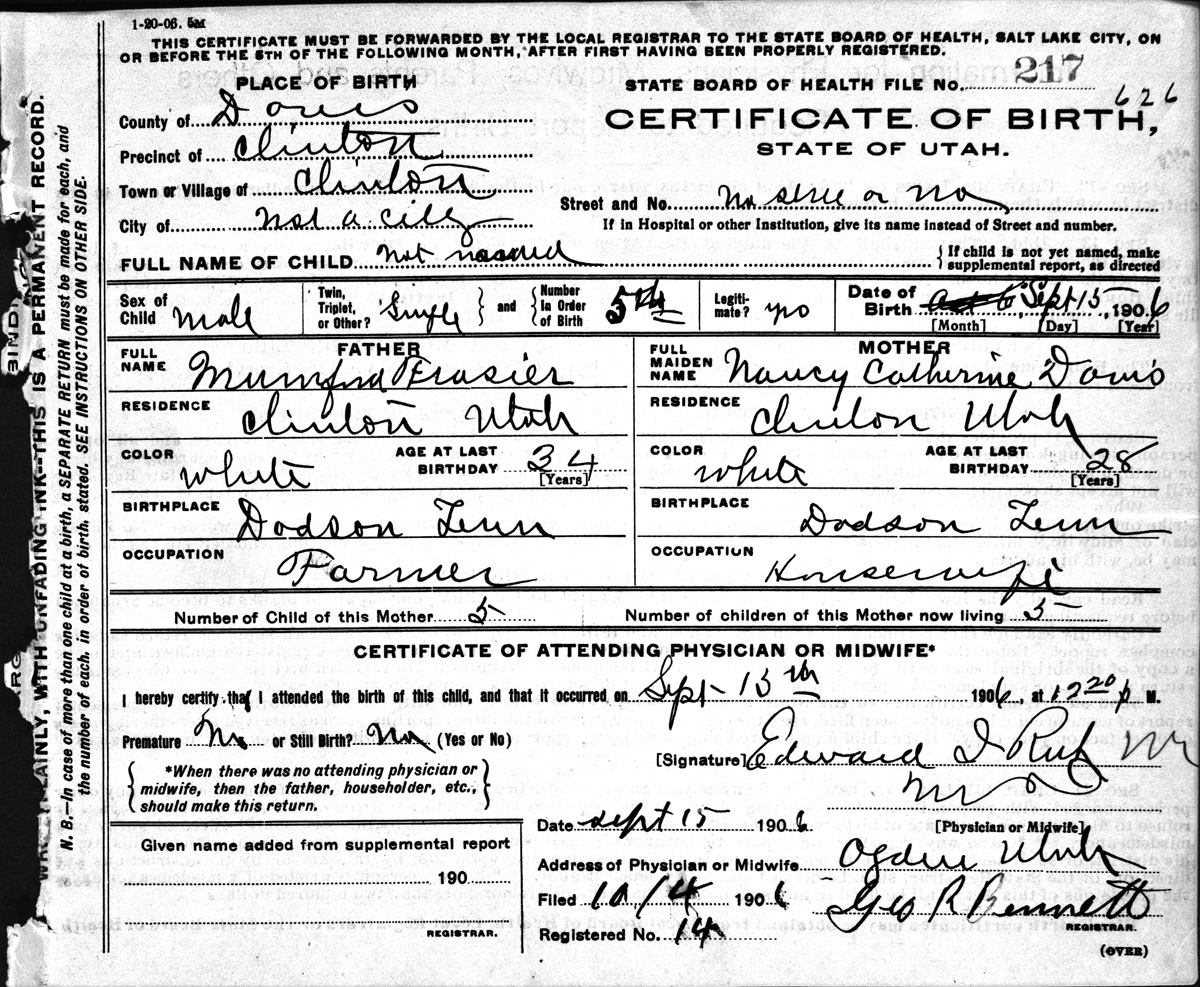 1-20-06. 5M
THIS CERTIFICATE MUST BE FORWARDED BY THE LOCAL REGISTRAR TO THE STATE BOARD OF HEALTH, SALT LAKE CITY, ON
OR BEFORE THE 5TH OF THE FOLLOWING MONTH, AFTER FIRST HAVING BEEN PROPERLY REGISTERED.
PLACE OF BIRTH
County of Davis
Precinct of Clinton
Town or Village of Clinton
City of Not a city
STATE BOARD OF HEALTH FILE No. 217
626
CERTIFICATE OF BIRTH,
STATE OF UTAH.
Street and No. No or No
If in Hospital or other Institution, give its name instead of Street and number.
FULL NAME OF CHILD Not named
If child is not yet named, make
supplemental report, as directed
Sex of Child Male
Twin, Triplet, or Other? Single
and Number in Order of Birth 5th
Legiti-mate? yes
Date of Birth Sept 15, 1906
[Month] [Day] [Year]
FATHER
FULL NAME Mumford Frasier
RESIDENCE Clinton Utah
COLOR White
AGE AT LAST BIRTHDAY 34 [Years]
BIRTHPLACE Dodson Tenn
OCCUPATION Farmer
MOTHER
FULL MAIDEN NAME Nancy Catherine Davis
RESIDENCE Clinton Utah
COLOR White
AGE AT LAST BIRTHDAY 28 [Years]
BIRTHPLACE Dodson Tenn
OCCUPATION Housewife
Number of Child of this Mother 5
Number of children of this Mother now living 5
CERTIFICATE OF ATTENDING PHYSICIAN OR MIDWIFE*
I hereby certify that I attended the birth of this child, and that it occurred on Sept 15th 1906, at 12 20 p M.
Premature No or Still Birth? No (Yes or No)
*When there was no attending physician or
midwife, then the father, householder, etc.,
should make this return.
[Signature] Edward I
M D
[Physician or Midwife]
Date Sept 15 1906
Address of Physician or Midwife Ogden Utah
Filed 10/4 1906 Geo R Bennett
REGISTRAR.
Registered No. 14
(OVER)
Given name added from supplemental report
190
REGISTRAR.
BINDING
PLAINLY, WITH UNFADING INK--THIS IS A PERMANENT RECORD.
N. B.—In case of more than one child at a birth, a SEPARATE RETURN must be made for each, and
the number of each, in order of birth, stated. SEE INSTRUCTIONS ON OTHER SIDE.